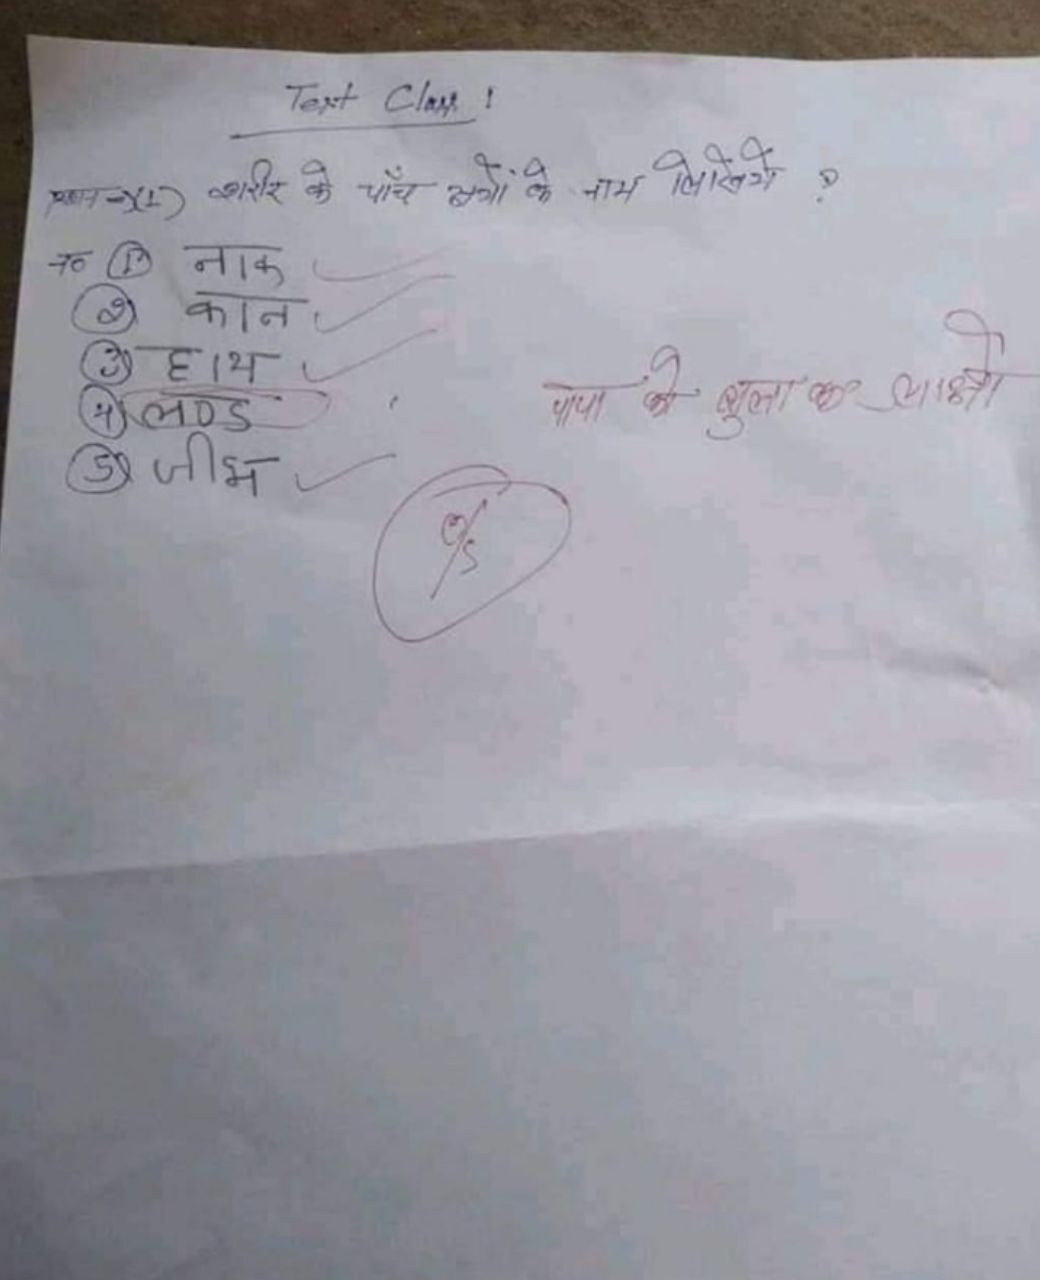 Text Class 1
प्रश्न-(1) शरीर के पाँच अंगों के नाम लिखिये ?
उ० ① नाक
② कान
③ हाथ
④ लण्ड
⑤ जीभ
पापा को बुला कर लाओ
0/5